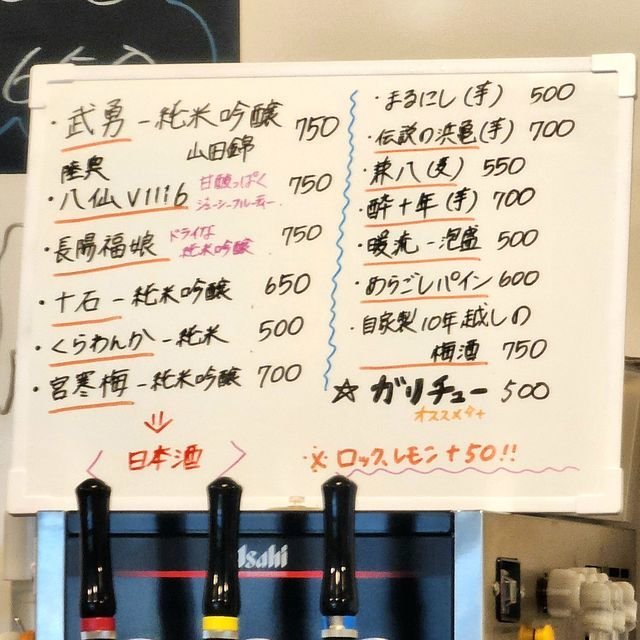 650
・武勇 - 純米吟醸 750
山田錦
陸奥
・八仙 V1116 甘酸っぱく 750
ジューシーフルーティー
・長陽福娘 ドライな 750
純米吟醸
・十石 - 純米吟醸 650
・くらわんか - 純米 500
・宮寒梅 - 純米吟醸 700
日本酒
・まるにし(芋) 500
・伝説の浜亀(芋) 700
・兼八(麦) 550
・酔十年(芋) 700
・暖流 - 泡盛 500
・めらごしパイン 600
・自家製10年越しの
梅酒 750
☆ ガリチュー 500
オススメです
※ロック、レモン+50!!
Asahi